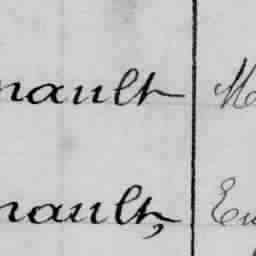 nault M
nault, Eu